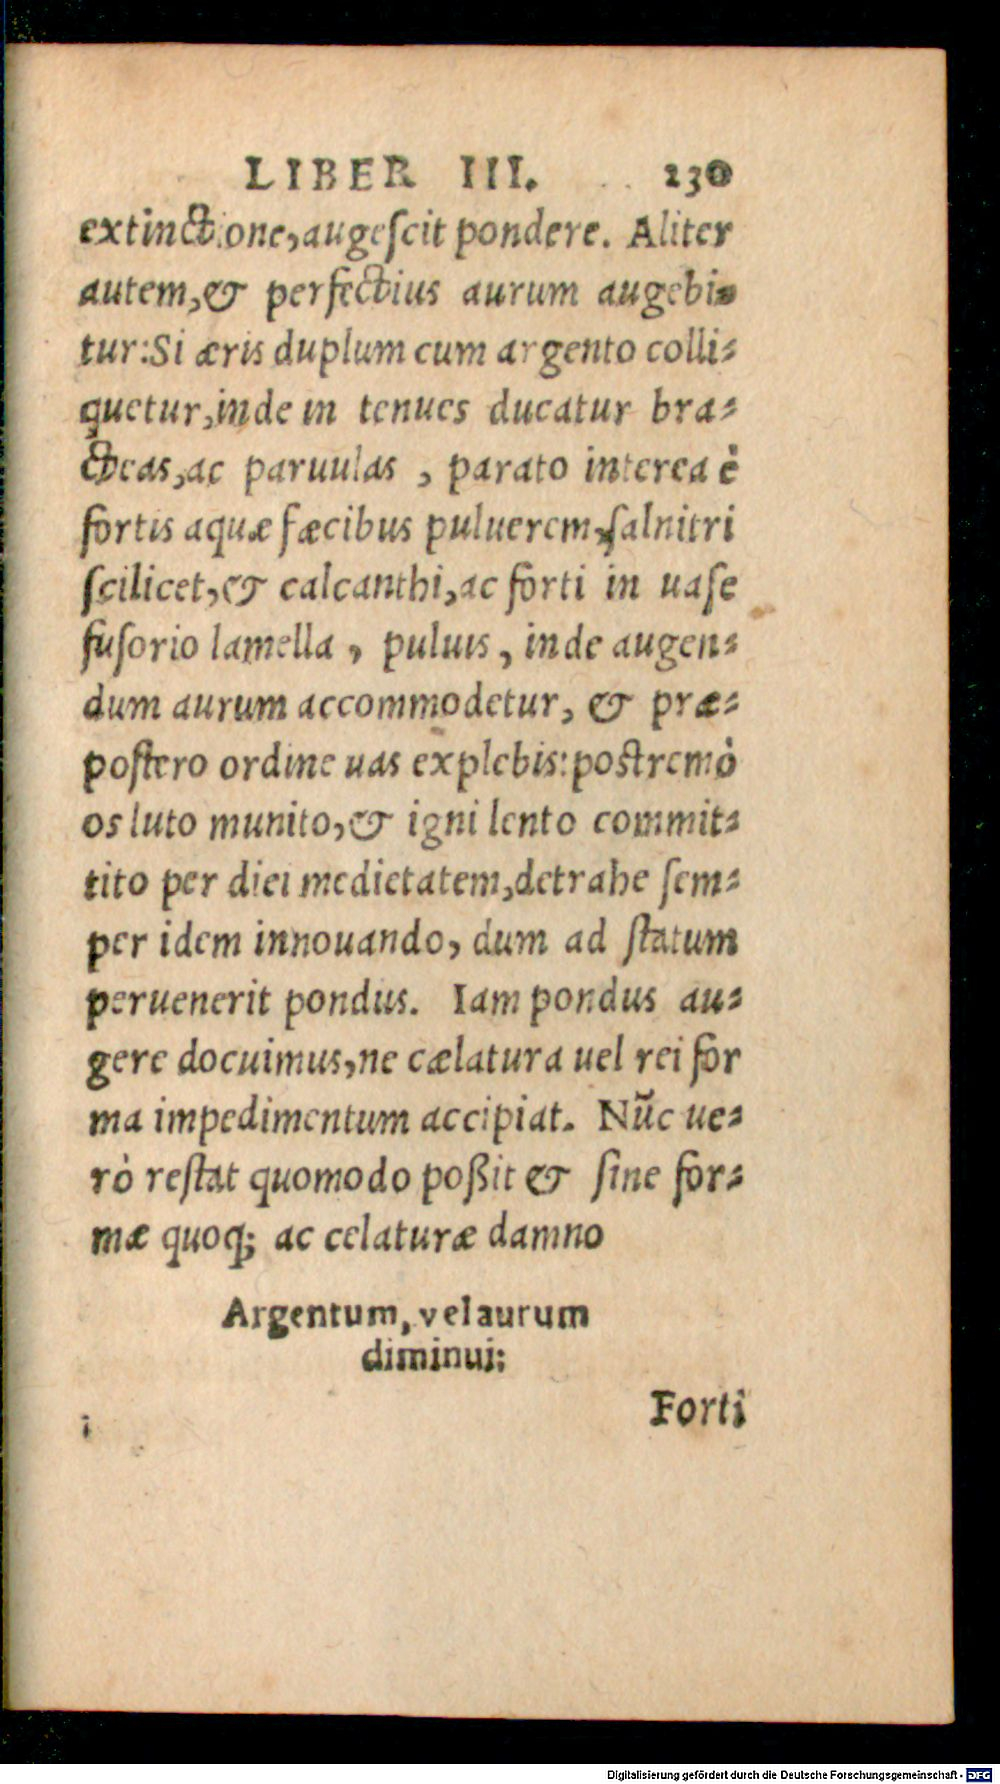 LIBER III. 230
extinctione, augeſcit pondere. Aliter
autem, & perfectius aurum augebi-
tur: Si æris duplum cum argento colli-
quetur, inde in tenues ducatur bra-
cteas, ac paruulas, parato interea è
fortis aquæ fæcibus puluerem, ſalnitri
ſcilicet, & calcanthi, ac forti in uaſe
fuſorio lamella, puluis, inde augen-
dum aurum accommodetur, & præ-
poſtero ordine uas explebis: postremò
os luto munito, & igni lento commit-
tito per diei medietatem, detrahe ſem-
per idem innouando, dum ad ſtatum
peruenerit pondus. Iam pondus au-
gere docuimus, ne cælatura uel rei for
ma impedimentum accipiat. Nũc ue-
rò reſtat quomodo poßit & ſine for-
mæ quoq; ac celaturæ damno
Argentum, vel aurum
diminui:
i Forti
Digitalisierung gefördert durch die Deutsche Forschungsgemeinschaft - DFG